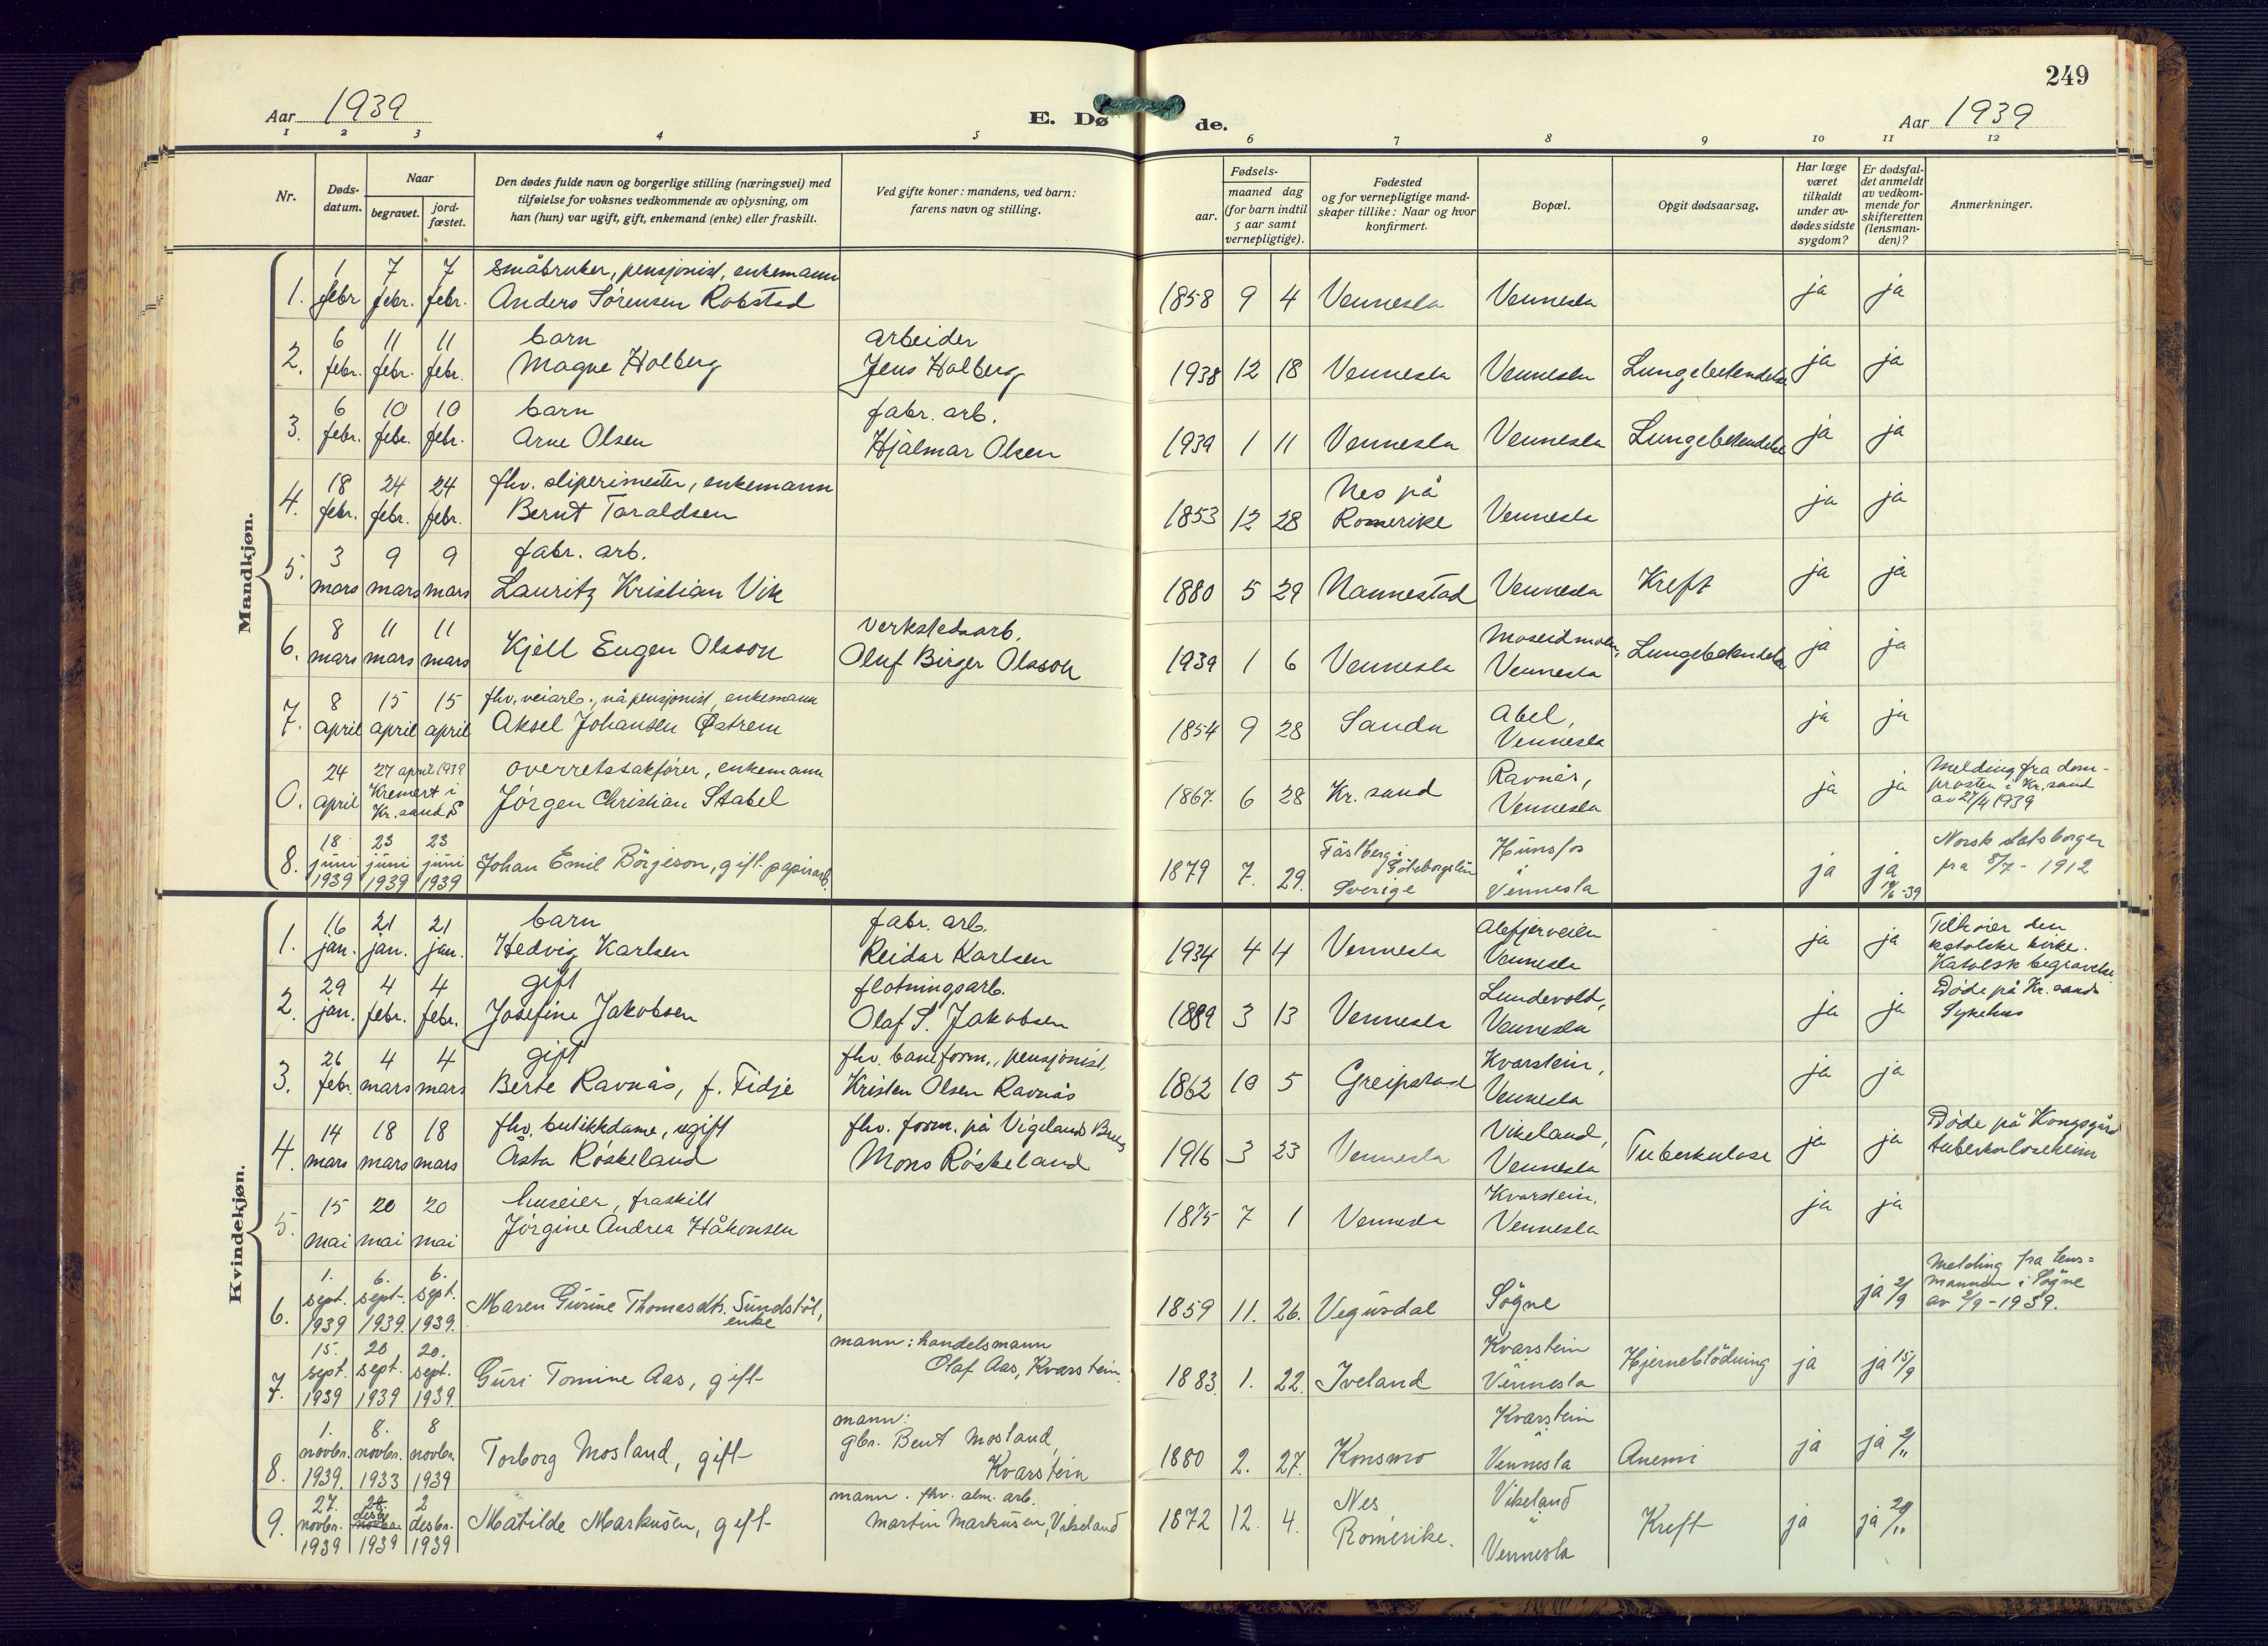 249
Aar 1939
E. Dø de.
Aar 1939
1 2 3 4 5 6 7 8 9 10 11 12
Nr.
Døds-
datum.
Naar
begravet.
jord-
fæstet.
Den dødes fulde navn og borgerlige stilling (næringsvei) med
tilføielse for voksnes vedkommende av oplysning, om
han (hun) var ugift, gift, enkemand (enke) eller fraskilt.
Ved gifte koner: mandens, ved barn:
farens navn og stilling.
Fødsels-
aar.
maaned dag
(for barn indtil
5 aar samt
vernepligtige).
Fødested
og for vernepligtige mand-
skaper tillike: Naar og hvor
konfirmert.
Bopæl.
Opgit dødsaarsag.
Har læge
været
tilkaldt
under av-
dødes sidste
sygdom?
Er dødsfal-
det anmeldt
av vedkom-
mende for
skifteretten
(lensman-
den)?
Anmerkninger.
Mandkjøn.
1 7 7 småbruker, pensjonist, enkemann
1. febr febr. febr. Anders Sörensen Robstad 1858 9 4 Vennesla Vennesla ja ja
6 11 11 barn arbeider
2. febr. febr. febr. Magne Holberg Jens Holberg 1938 12 18 Vennesla Vennesla Lungebetendelse ja ja
6 10 10 barn fabr. arb.
3. febr. febr. febr. Arne Olsen Hjalmar Olsen 1939 1 11 Vennesla Vennesla Lungebetendelse ja ja
18 24 24 fhv. sliperimester, enkemann Nes på
4. febr. febr. febr. Bernt Taraldsen 1853 12 28 Romerike Vennesla ja ja
3 9 9 fabr. arb.
5. mars mars mars Lauritz Kristian Vik 1880 5 29 Nannestad Vennesla Kreft ja ja
8 11 11 verkstedsarb. Moseidmoen,
6. mars mars mars Kjell Eugen Olsson Oluf Birger Olsson 1939 1 6 Vennesla Vennesla Lungebetendelse ja ja
8 15 15 fhv. veiarb., nå pensjonist, enkemann Abel,
7. april april april Aksel Johansen Østrem 1854 9 28 Sandn Vennesla ja ja
24 27 april 1939 overretssakfører, enkemann Ravnås, Melding fra dom-
0. april Kremert i Kr.sand S Jörgen Christian Stabel 1867 6 28 Kr. sand Vennesla ja ja prosten i Kr.sand
av 27/4 1939
18 23 23 Fästberg i Hunsfos Norsk statsborger
8. juni juni juni Johan Emil Börjeson, gift papirarb. 1879 7. 29. Göteborgslän i ja ja fra 8/7 - 1912
1939 1939 1939 Sverige Vennesla 19/6-39
Kvindekjøn.
16 21 21 barn fabr. arb. Abefjerveien Tilhører den
1. jan. jan. jan. Hedvig Karlsen Reidar Karlsen 1934 4 4 Vennesla Vennesla ja ja katolske kirke.
Katolsk begravelse
29 4 4 gift flotningsarb. Lundevold, Döde på Kr. sands
2. jan. febr. febr. Josefine Jakobsen Olaf S. Jakobsen 1889 3 13 Vennesla Vennesla ja ja Sykehus
26 4 4 gift fhv. baneform., pensjonist, Kvarstein,
3. febr. mars mars Berte Ravnås, f. Fidje Kristen Olsen Ravnås 1862 10 5 Greipstad Vennesla ja ja
14 18 18 fhv. butikkdame, ugift fhv. form. på Vigelands Brug Vikeland, Döde på Kongsgård
4. mars mars mars Åsta Röskeland Mons Röskeland 1916 3 23 Vennesla Vennesla Tuberkulose ja ja tuberkuloseheim
15 20 20 huseier, fraskilt Kvarstein,
5. mai mai mai Jörgine Andrea Håkonsen 1875 7 1 Vennesla Vennesla ja ja
1. 6. 6. Melding fra lens=
sept. sept. sept. Maren Gurine Thomasdtr. Sundstöl, mannen i Søgne
6. 1939 1939. 1939. enke 1859 11. 26. Vegusdal Søgne ja 2/9 av 2/9 - 1939.
15. 20 20. mann: handelsmann Kvarstein
sept. sept. sept. Guri Tomine Aas, gift Olaf Aas, Kvarstein Hjerneblödning ja ja 15/9
7. 1939 1939 1939. 1883. 1. 22. Iveland Vennesla
1. 8. 8 mann: Kvarstein
novbr. novbr. novbr. Torborg Mosland, gift gbr. Bent Mosland,
8. 1939. 1933 1939 Kvarstein 1880 2. 27. Konsmo Vennesla Anemi ja ja 2/11
27. 28. 2 mann. fhv. alm. arb. Nes Vikeland
9. novbr. desbr. novbr. desbr. Matilde Markusen, gift Martin Markusen, Vikeland 1872 12. 4. Romerike. Kreft ja ja 29/11
1939 1939 1939 Vennesla